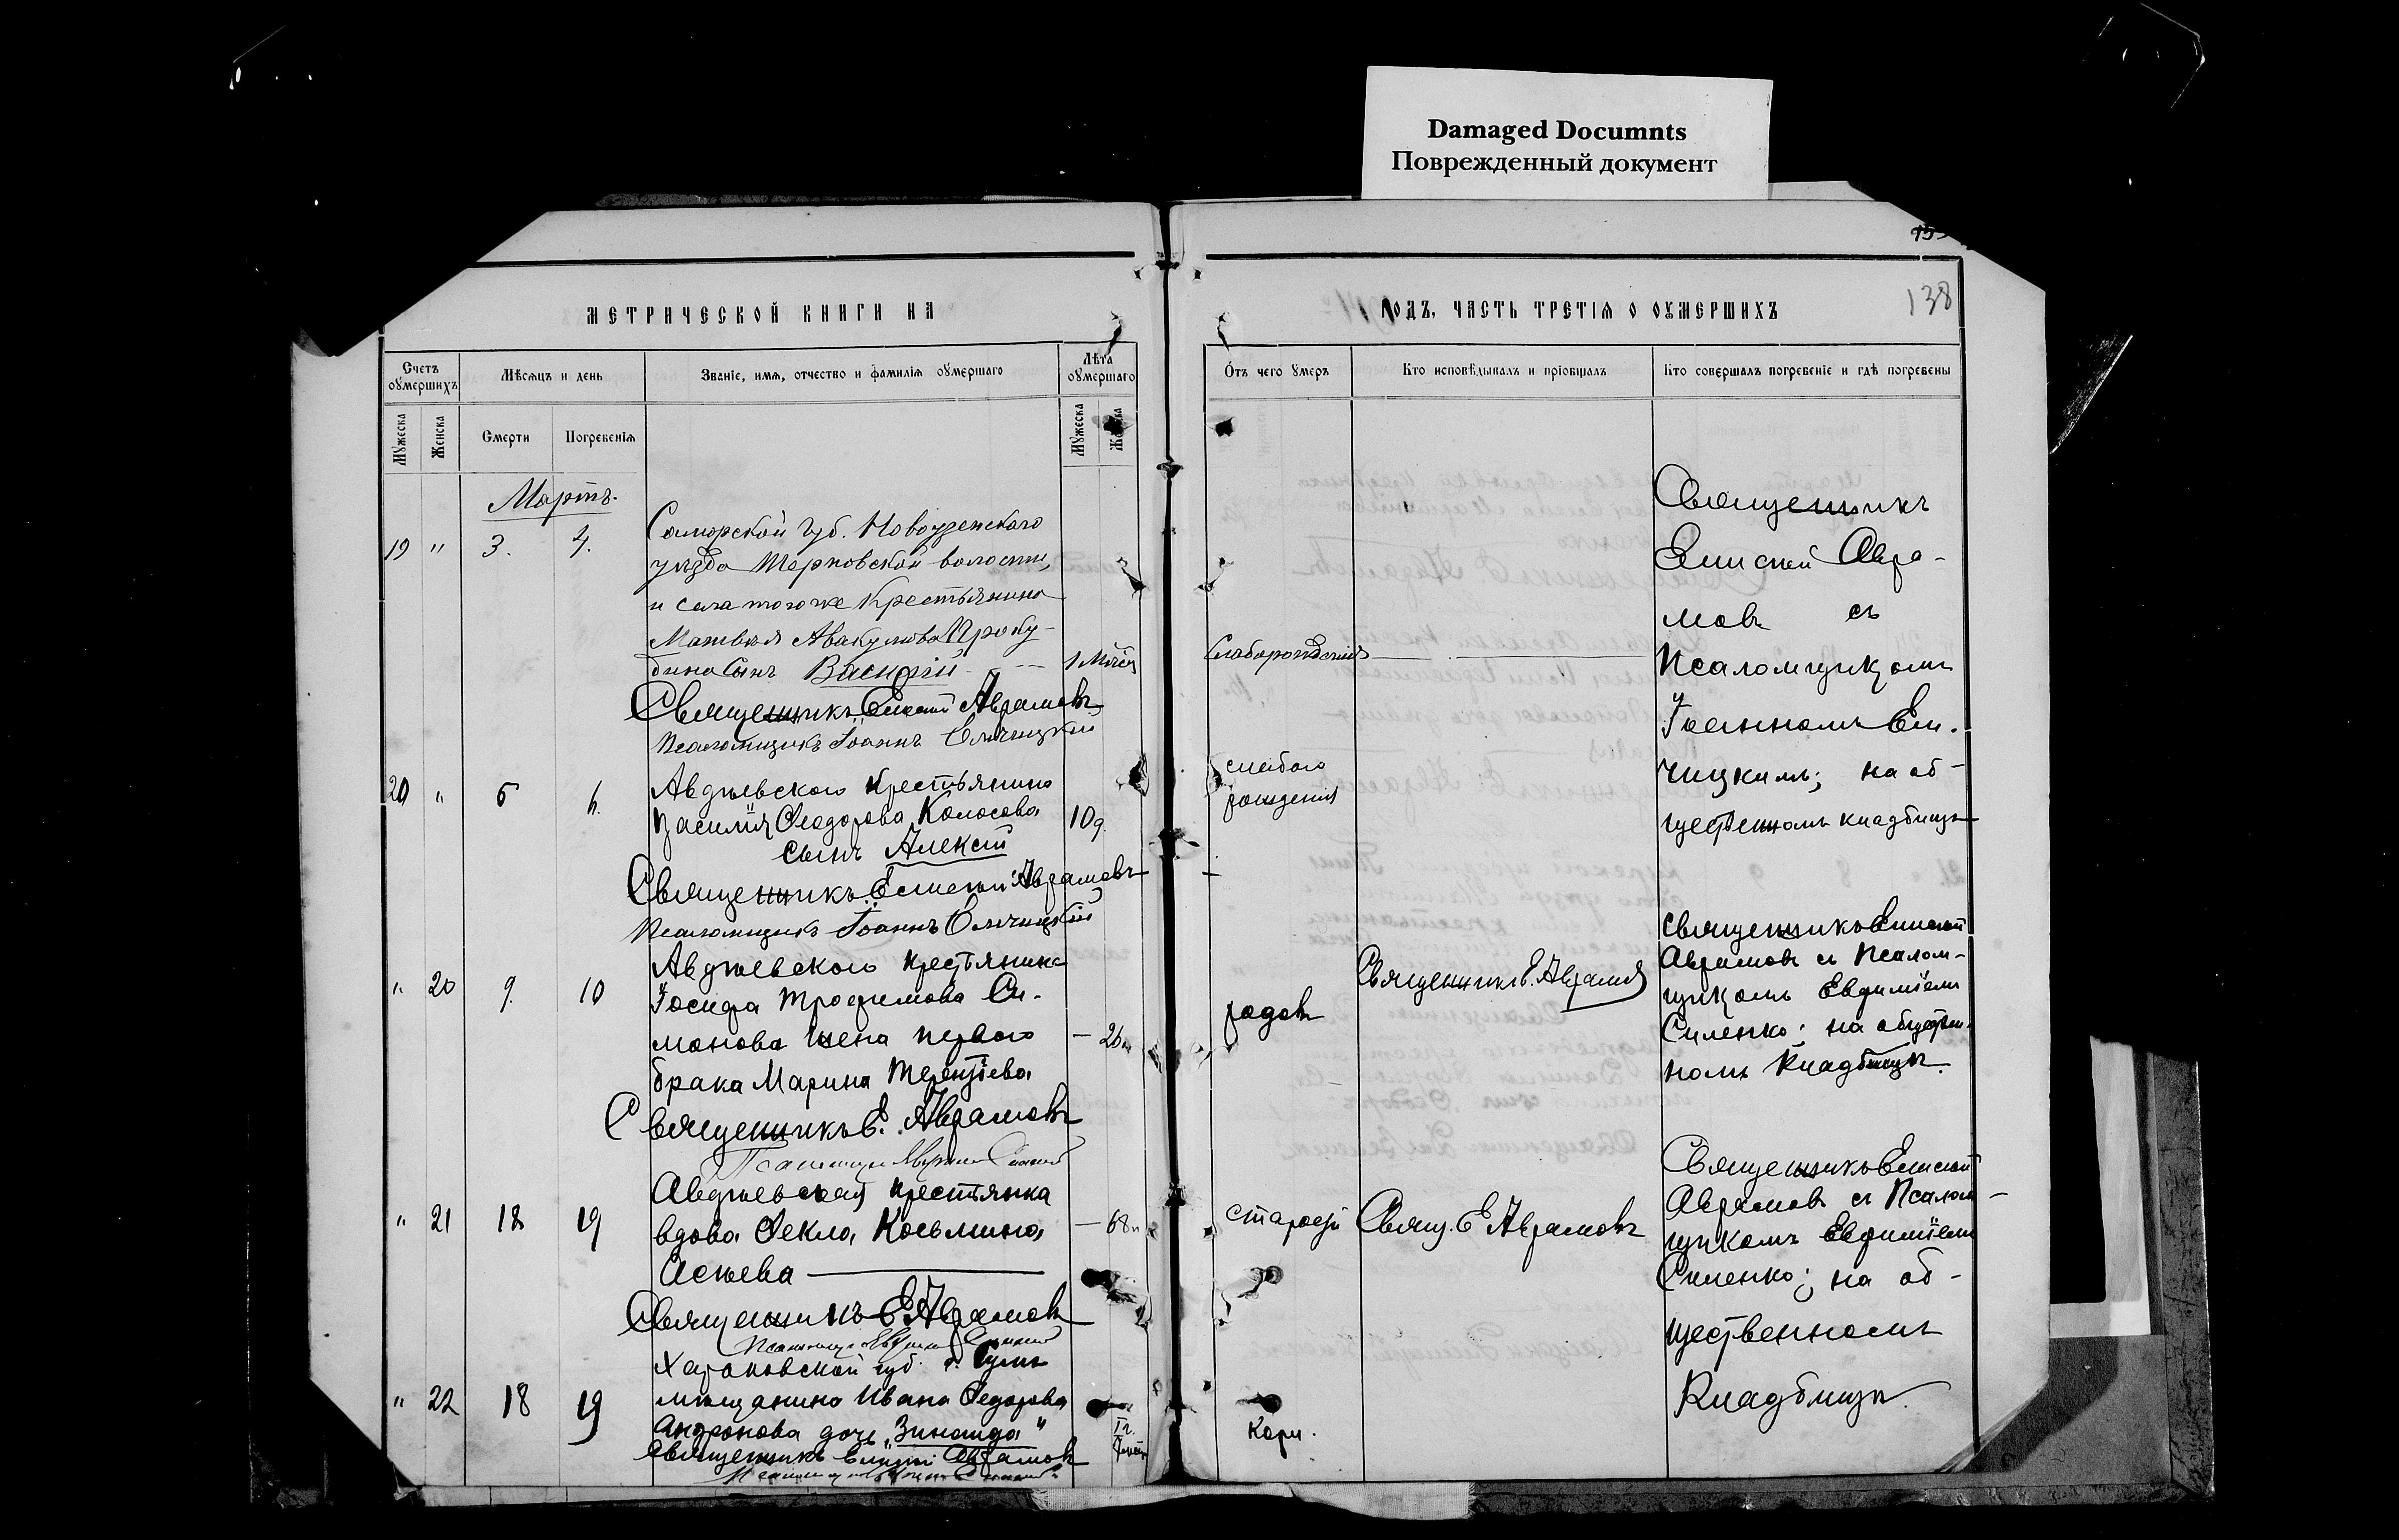 Damaged Documnts
Поврежденный документ
138
МЕТРИЧЕСКОЙ КНИГИ НА
ГОДЪ, ЧАСТЬ ТРЕТІѦ О ОУМЕРШИХЪ
Счетъ оумершихъ
Мѣсяцъ и день
Званіе, имя, отчество и фамилія оумершаго
Лѣта оумершаго
Мужеска
Женска
Смерти
Погребенія
Мужеска
Отъ чего умеръ
Кто исповѣдывалъ и пріобщалъ
Кто совершалъ погребеніе и гдѣ погребены
Мартъ.
19 " 3. 4.
Самарской губ. Новоузенскаго
уѣзда волости,
и села тогоже Крестьянина
Матвѣя Авакумова Проку-
дина Сынъ Василій
1 Мѣсяц
Священникъ Елисей Аврамовъ
Псаломщикъ Іоаннъ
Слаборожденія
Священникъ
Елисей Авра-
мовъ съ
Псаломщикомъ
Іоанномъ
на об-
щественномъ кладбищѣ
20 " 5 6.
Авдѣевскаго Крестьянина
Василія Ѳеодорова Колосова
сынъ Алексѣй
10 д.
Священникъ Елисей Аврамовъ
Псаломщикъ Іоаннъ
слабого
рождения
" 20 9. 10
Авдѣевскаго Крестьянина
Іосифа Трофимова Си-
монова жена первого
брака Марина Терентіева
Священникъ Е. Аврамовъ
родовъ
Священникъ Е. Аврамов
Священникъ Елисей
Аврамовъ съ Псалом-
щикомъ Евфиміемъ
Силенко; на обществен-
номъ Кладбищѣ.
" 21 18 19
Авдѣевская Крестьянка
вдова Ѳекла Косьмина
68
Священникъ Е. Аврамовъ
старости
Свящ. Е. Аврамовъ
Священникъ Елисей
Аврамовъ съ Псалом-
щикомъ Евфиміемъ
Силенко; на об-
щественномъ
Кладбищѣ.
" 22 18 19
Харьковской губ. г. Сумъ
мѣщанина Ивана Ѳедорова
Андронова дочь "Зинаида"
Священникъ Елисей Аврамовъ
1 г.
Кори.